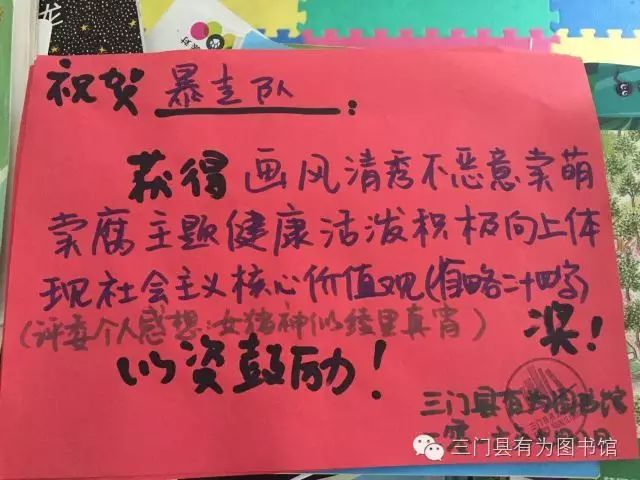 祝贺 暴走队：
获得画风清秀不恶意卖萌
卖腐主题健康活泼积极向上体
现社会主义核心价值观(省略二十四字)
(评委个人感想:女猪神似绫里真宵) 奖！
以资鼓励！
三门县有为图书馆
三门县有为图书馆